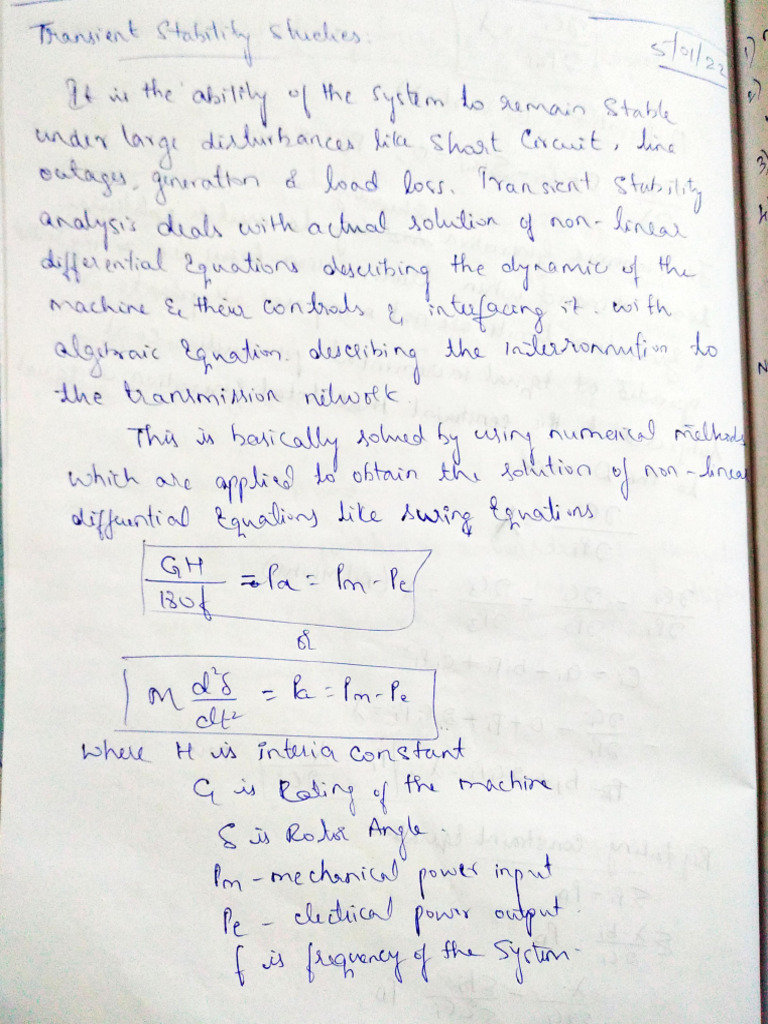 Transient Stability Studies.
5/01/22
It is the ability of the system to remain stable
under large disturbances like Short Circuit, line
outages, generation & load loss. Transient Stability
analysis deals with actual solution of non-linear
differential Equations describing the dynamic of the
machine & their controls & interfacing it. with
algebraic Equation. describing the to
the transmission network
This is basically solved by using numerical methods
which are applied to obtain the solution of non-linear
differential Equations like swing Equations
GH/180f = Pa = Pm - Pe
or
M d²δ/dt² = Pa = Pm - Pe
where H is interia constant
G is Rating of the machine
δ is Rotor Angle.
Pm - mechanical power input
Pe - electrical power output.
f is frequency of the System.
1)
3)